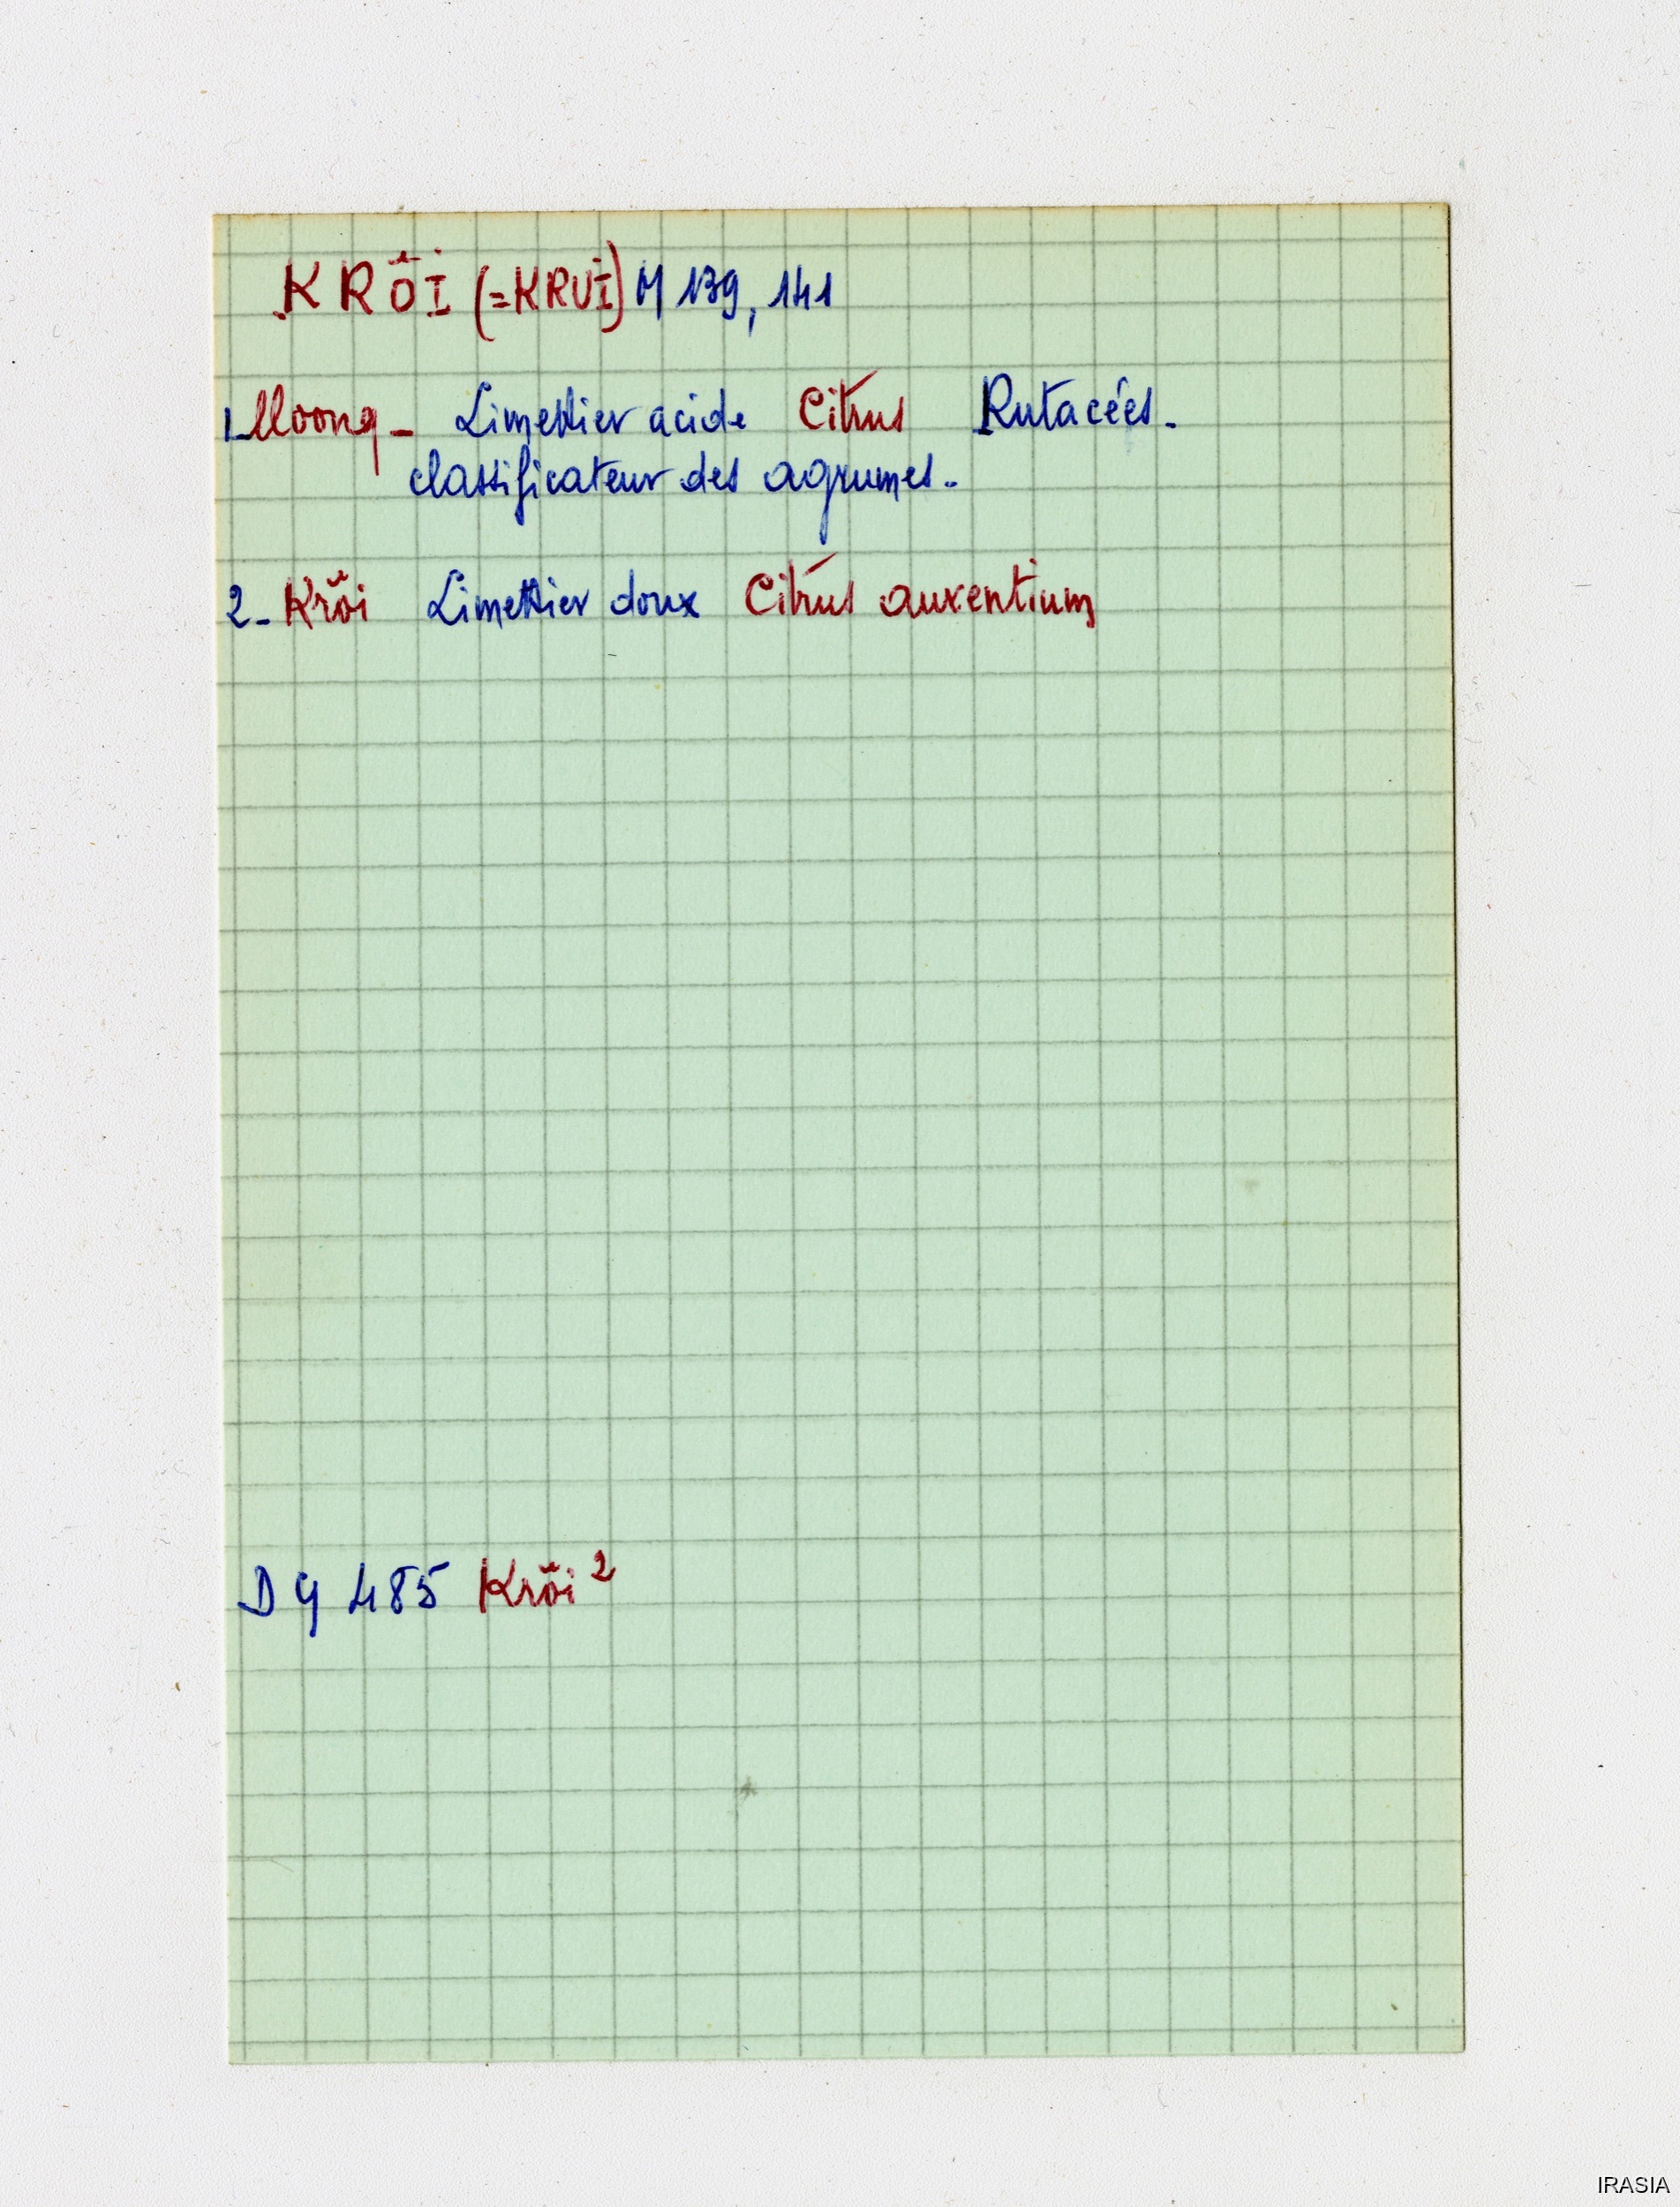 KRÖI (=KRUI) M 139, 141
1_Moong_ Limettier acide Citrus Rutacées.
classificateur des agrumes.
2_ Kröi Limettier doux Citrus aurentium
D 9 485 Kröi ²
IRASIA